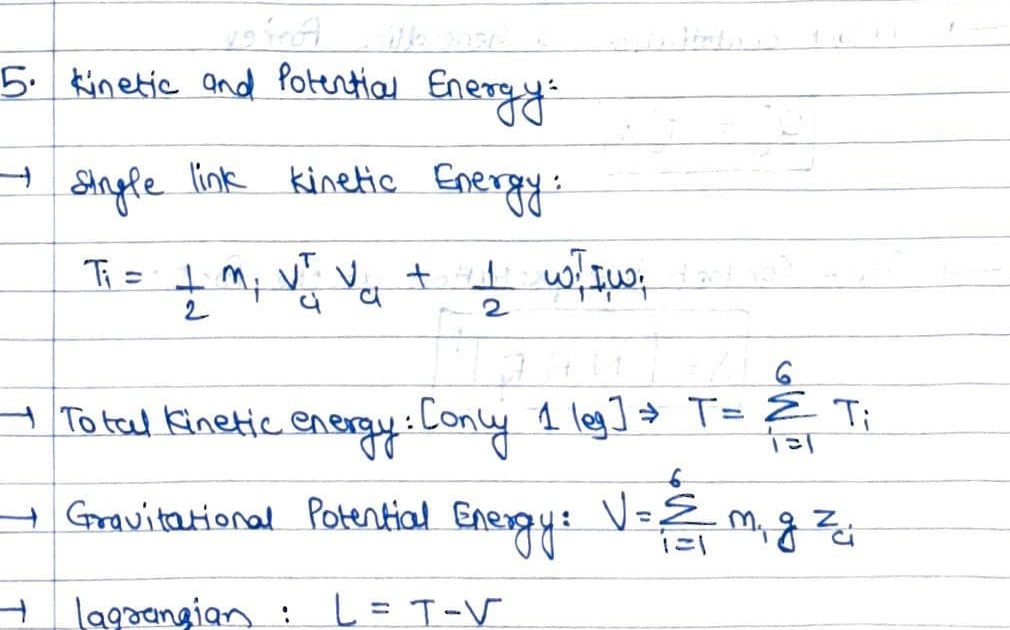 5. Kinetic and Potential Energy:
→ Single link Kinetic Energy:
Tᵢ = 1/2 mᵢ v_ciᵀ v_ci + 1/2 ωᵢᵀ Iᵢ ωᵢ
→ Total Kinetic energy: [only 1 leg] ⇒ T = Σ_{i=1}^{6} Tᵢ
→ Gravitational Potential Energy: V = Σ_{i=1}^{6} mᵢ g z_ci
→ lagrangian : L = T - V